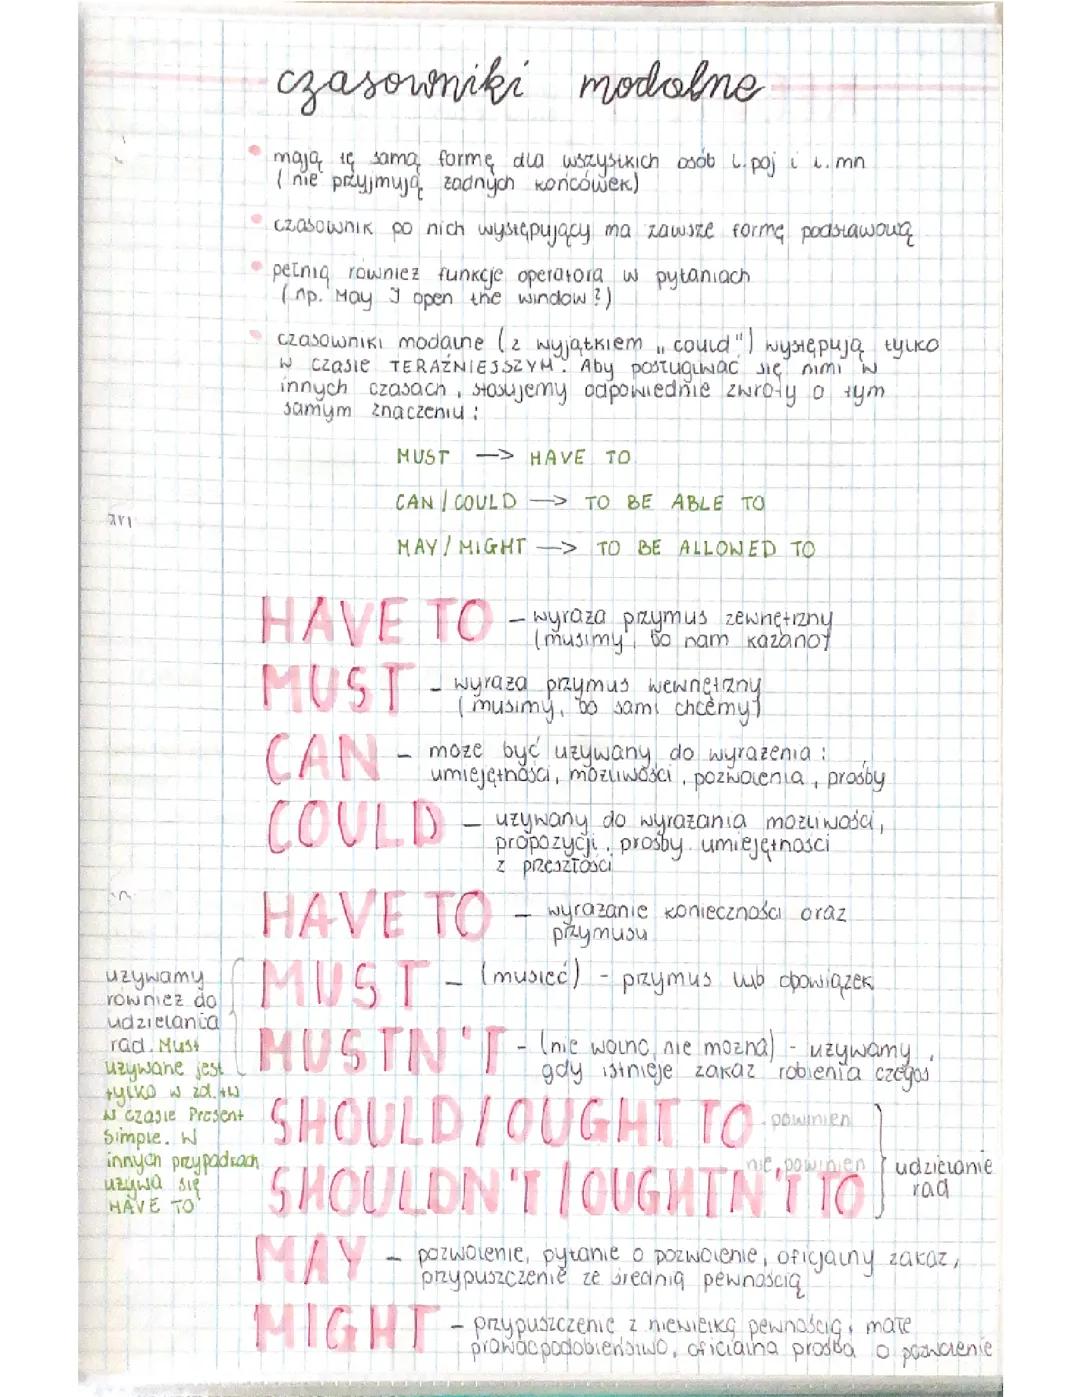 czasowniki modalne
• mają tę samą formę dla wszystkich osób l. poj i l. mn
(nie przyjmują żadnych końcówek)
• czasownik po nich występujący ma zawsze formę podstawową
• pełnią również funkcje operatora w pytaniach
(np. May I open the window?)
• czasowniki modalne (z wyjątkiem „could") występują tylko
w czasie TERAŹNIEJSZYM. Aby posługiwać się nimi w
innych czasach, stosujemy odpowiednie zwroty o tym
samym znaczeniu:
MUST —> HAVE TO
CAN / COULD —> TO BE ABLE TO
MAY / MIGHT —> TO BE ALLOWED TO
HAVE TO – wyraża przymus zewnętrzny
(musimy, bo nam kazano)
MUST – wyraża przymus wewnętrzny
(musimy, bo sami chcemy)
CAN – może być używany do wyrażenia:
umiejętności, możliwości, pozwolenia, prośby
COULD – używany do wyrażania możliwości,
propozycji, prośby umiejętności
z przeszłości
HAVE TO – wyrażanie konieczności oraz
przymusu
MUST – (musieć) – przymus lub obowiązek
MUSTN'T – (nie wolno, nie można) – używamy,
gdy istnieje zakaz robienia czegoś
używamy
również do
udzielania
rad. Must
używane jest
tylko w zd. tw
w czasie Present
Simple. W
innych przypadkach
używa się
HAVE TO
SHOULD / OUGHT TO - powinien
nie powinien
SHOULDN'T / OUGHTN'T TO
udzielanie
rad
MAY – pozwolenie, pytanie o pozwolenie, oficjalny zakaz,
przypuszczenie ze średnią pewnością
MIGHT – przypuszczenie z niewielką pewnością, małe
prawdopodobieństwo, oficjalna prośba o pozwolenie